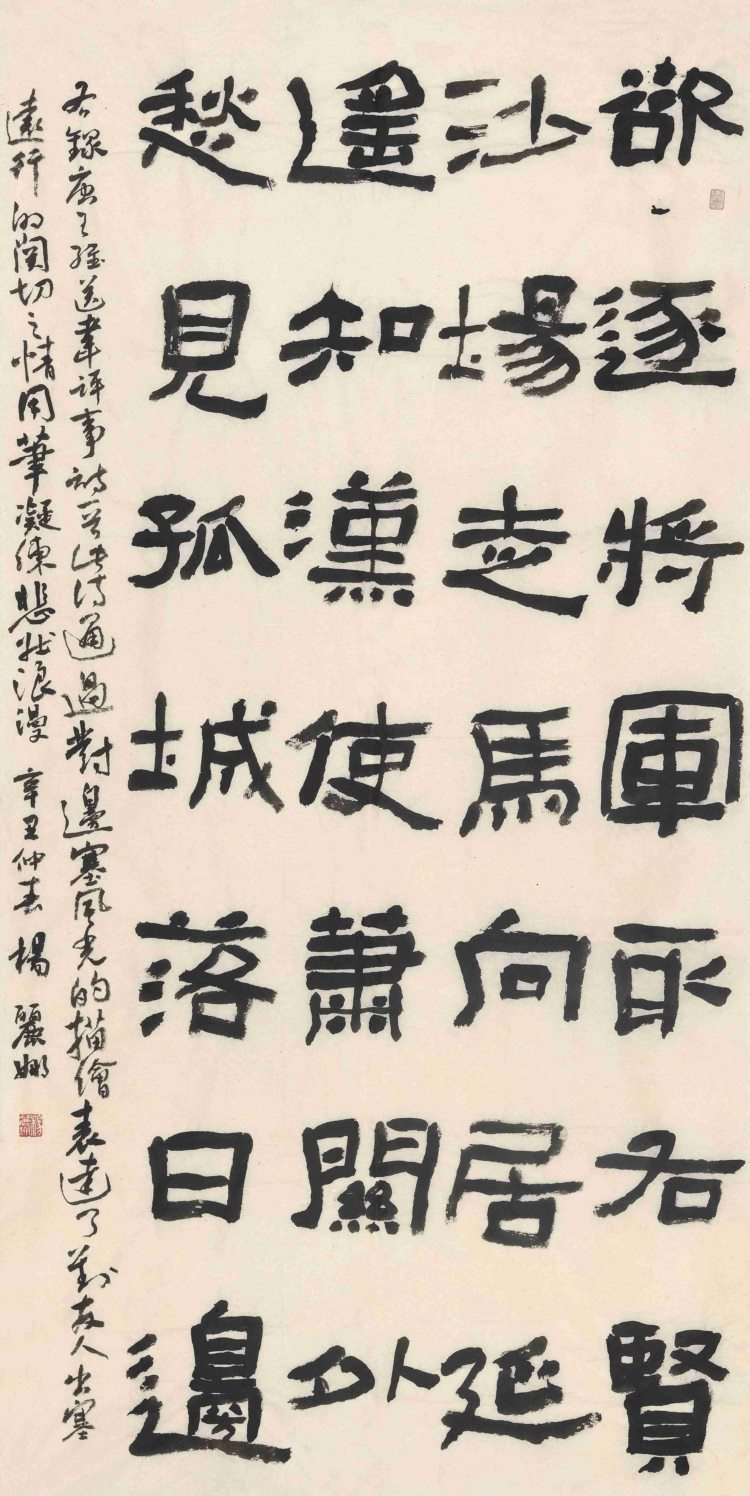 欲逐將軍取右賢
沙場走馬向居延
遙知漢使蕭關外
愁見孤城落日邊
右錄唐王維送韋評事詩一首此詩通過對邊塞風光的描繪表達了對友人出塞
遠行的関切之情用筆凝練悲壯浪漫 辛丑仲春 楊麗娜